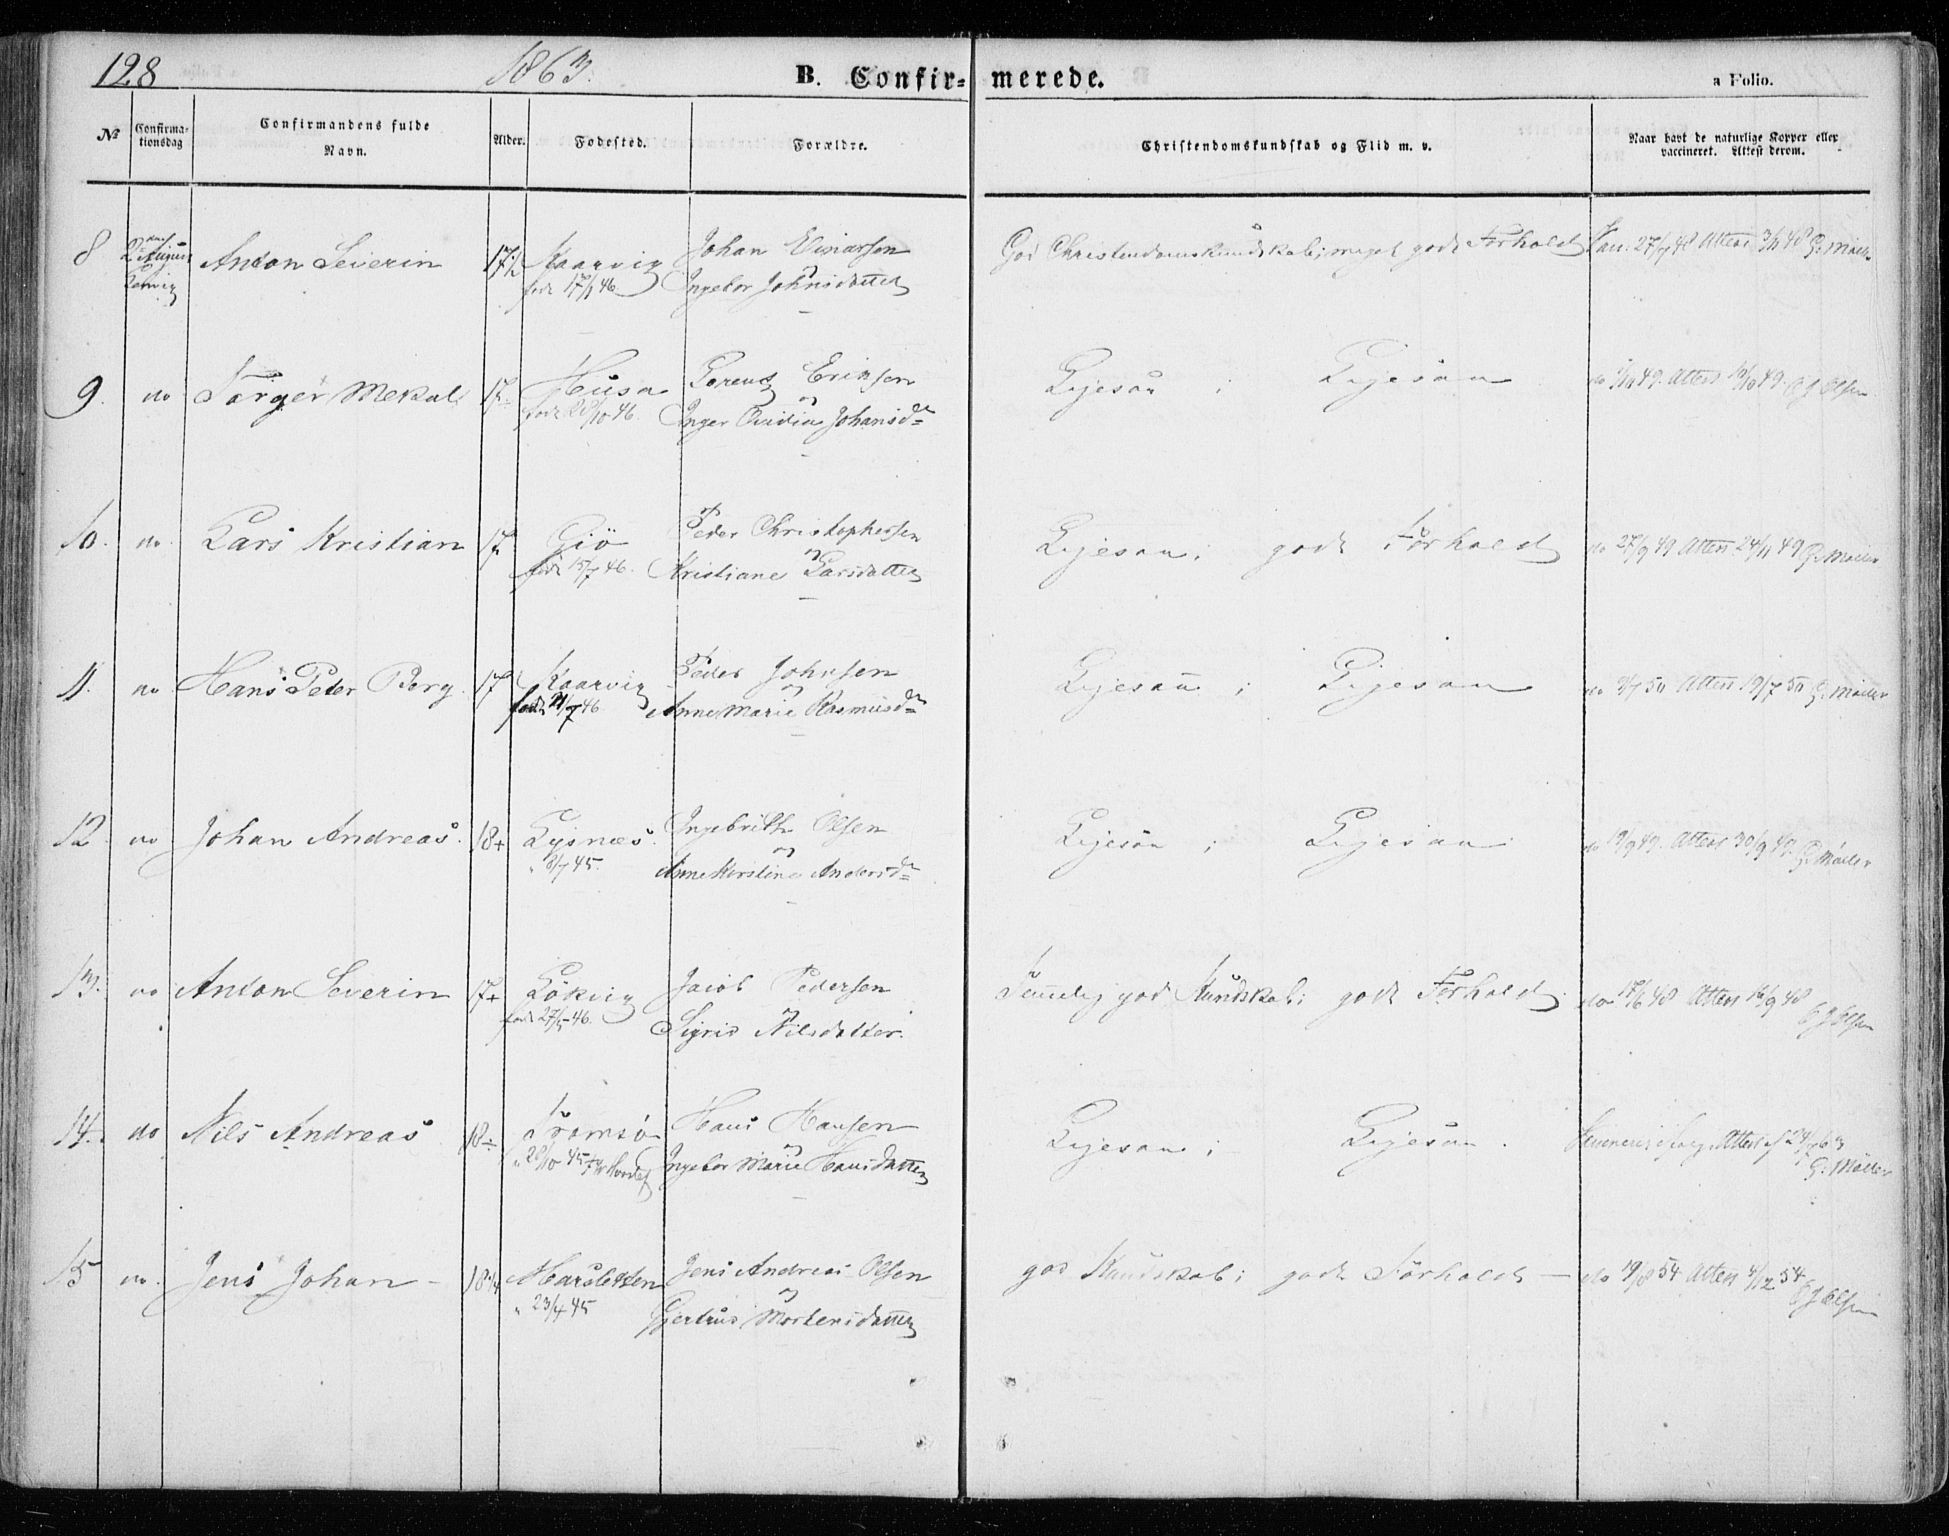 128 1863. B. Confirmerede. a Folio.
№ Confirmationsdag Confirmandens fulde Navn. Alder. Fødested. Forældre. Christendomskundskab og Flid m. v. Naar havt de naturlige Kopper eller vaccineret. Attest derom.
8 2den August Anton Severin 17½ Kaarvig Johan Good Christendomskundskab; meget godt Forhold Vacc. 27/9 48 Attest 3/11 48 G. Møller
født 17/1 46. og Ingebor Johnsdatter
9. do Torger Mekal 17 Husa Lorents Eriksen Ligesaa ; Ligesaa do Attest 49. E J Olsen
født 20/10 46. og Inger Johansdr
10. do Lars Kristian 17 Giø Peder Christophersen Ligesaa ; godt Forhold do 27/9 49 Attest 24/11 49 G. Møller
født 15/7 46. og Kristiane Larsdatter
11. do Hans Peter Berg 17 Kaarvig Peder Johnsen Ligesaa ; Ligesaa do 50 Attest 19/7 50 G. Møller
født 21/7 46 og Anne Marie Rasmusdr
12 do Johan Andreas. 18+ Lysnæs. Ingebrith Olsen Ligesaa ; Ligesaa do 19/9 49. Attest 30/9 49. G. Møller
" 8/7 45. og Anne Kirstine Andersdr
13. do Anton Severin 17+ Løkvig Jacob Pedersen Temmelig god Kundskab; godt Forhold do 17/6 48 Attest 16/9 48 E J Olsen
født 27/5 46. Sigrid Nilsdatter.
14. do Nils Andreas 18÷ Tromsø Hans Hansen Ligesaa ; Ligesaa. Attest af 24/7 63 G. Møller
" 20/10 45 og Ingebor Marie Hansdatter
15 do. Jens Johan - 18¼ Marsletten Jens Andreas Olsen god Kundskab; godt Forhold — do 19/8 54 Attest 4/12 54 E J Olsen
" 23/4 45 og Gjertrud Mortensdatter